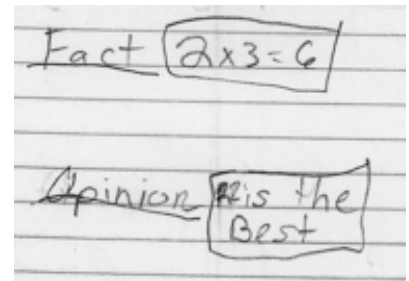 Fact 2x3=6
Opinion is the
Best